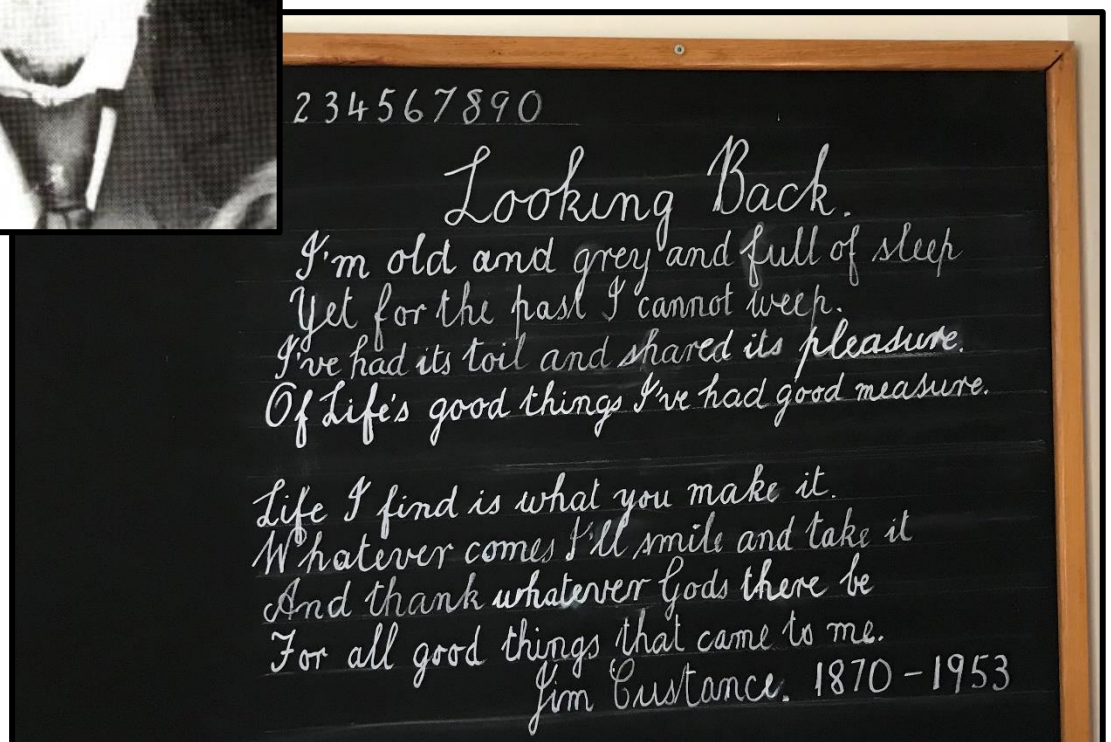 234567890
Looking Back.
I'm old and grey and full of sleep
Yet for the past I cannot weep.
I've had its toil and shared its pleasure.
Of Life's good things I've had good measure.
Life I find is what you make it.
Whatever comes I'll smile and take it
And thank whatever Gods there be
For all good things that came to me.
Jim Custance. 1870-1953